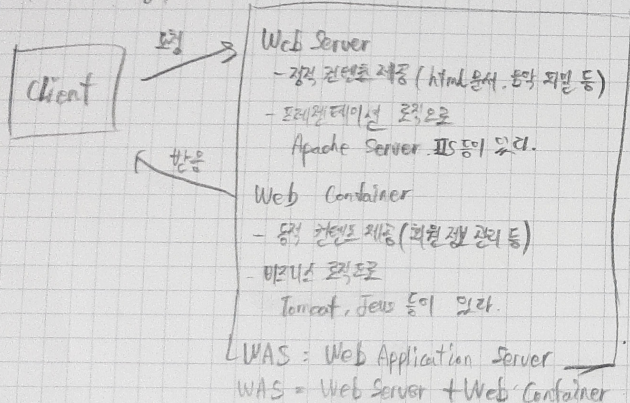 요청
Web Server
client
- 정적 컨텐츠 제공 (html 문서, 음악 파일 등)
- 프레젠테이션 로직으로
Apache Server IIS등이 있다.
받음
Web Container
- 동적 컨텐츠 제공 (회원 정보 관리 등)
- 비즈니스 로직으로
Tomcat, Jeus 등이 있다.
WAS = Web Application Server
WAS = Web Server + Web Container